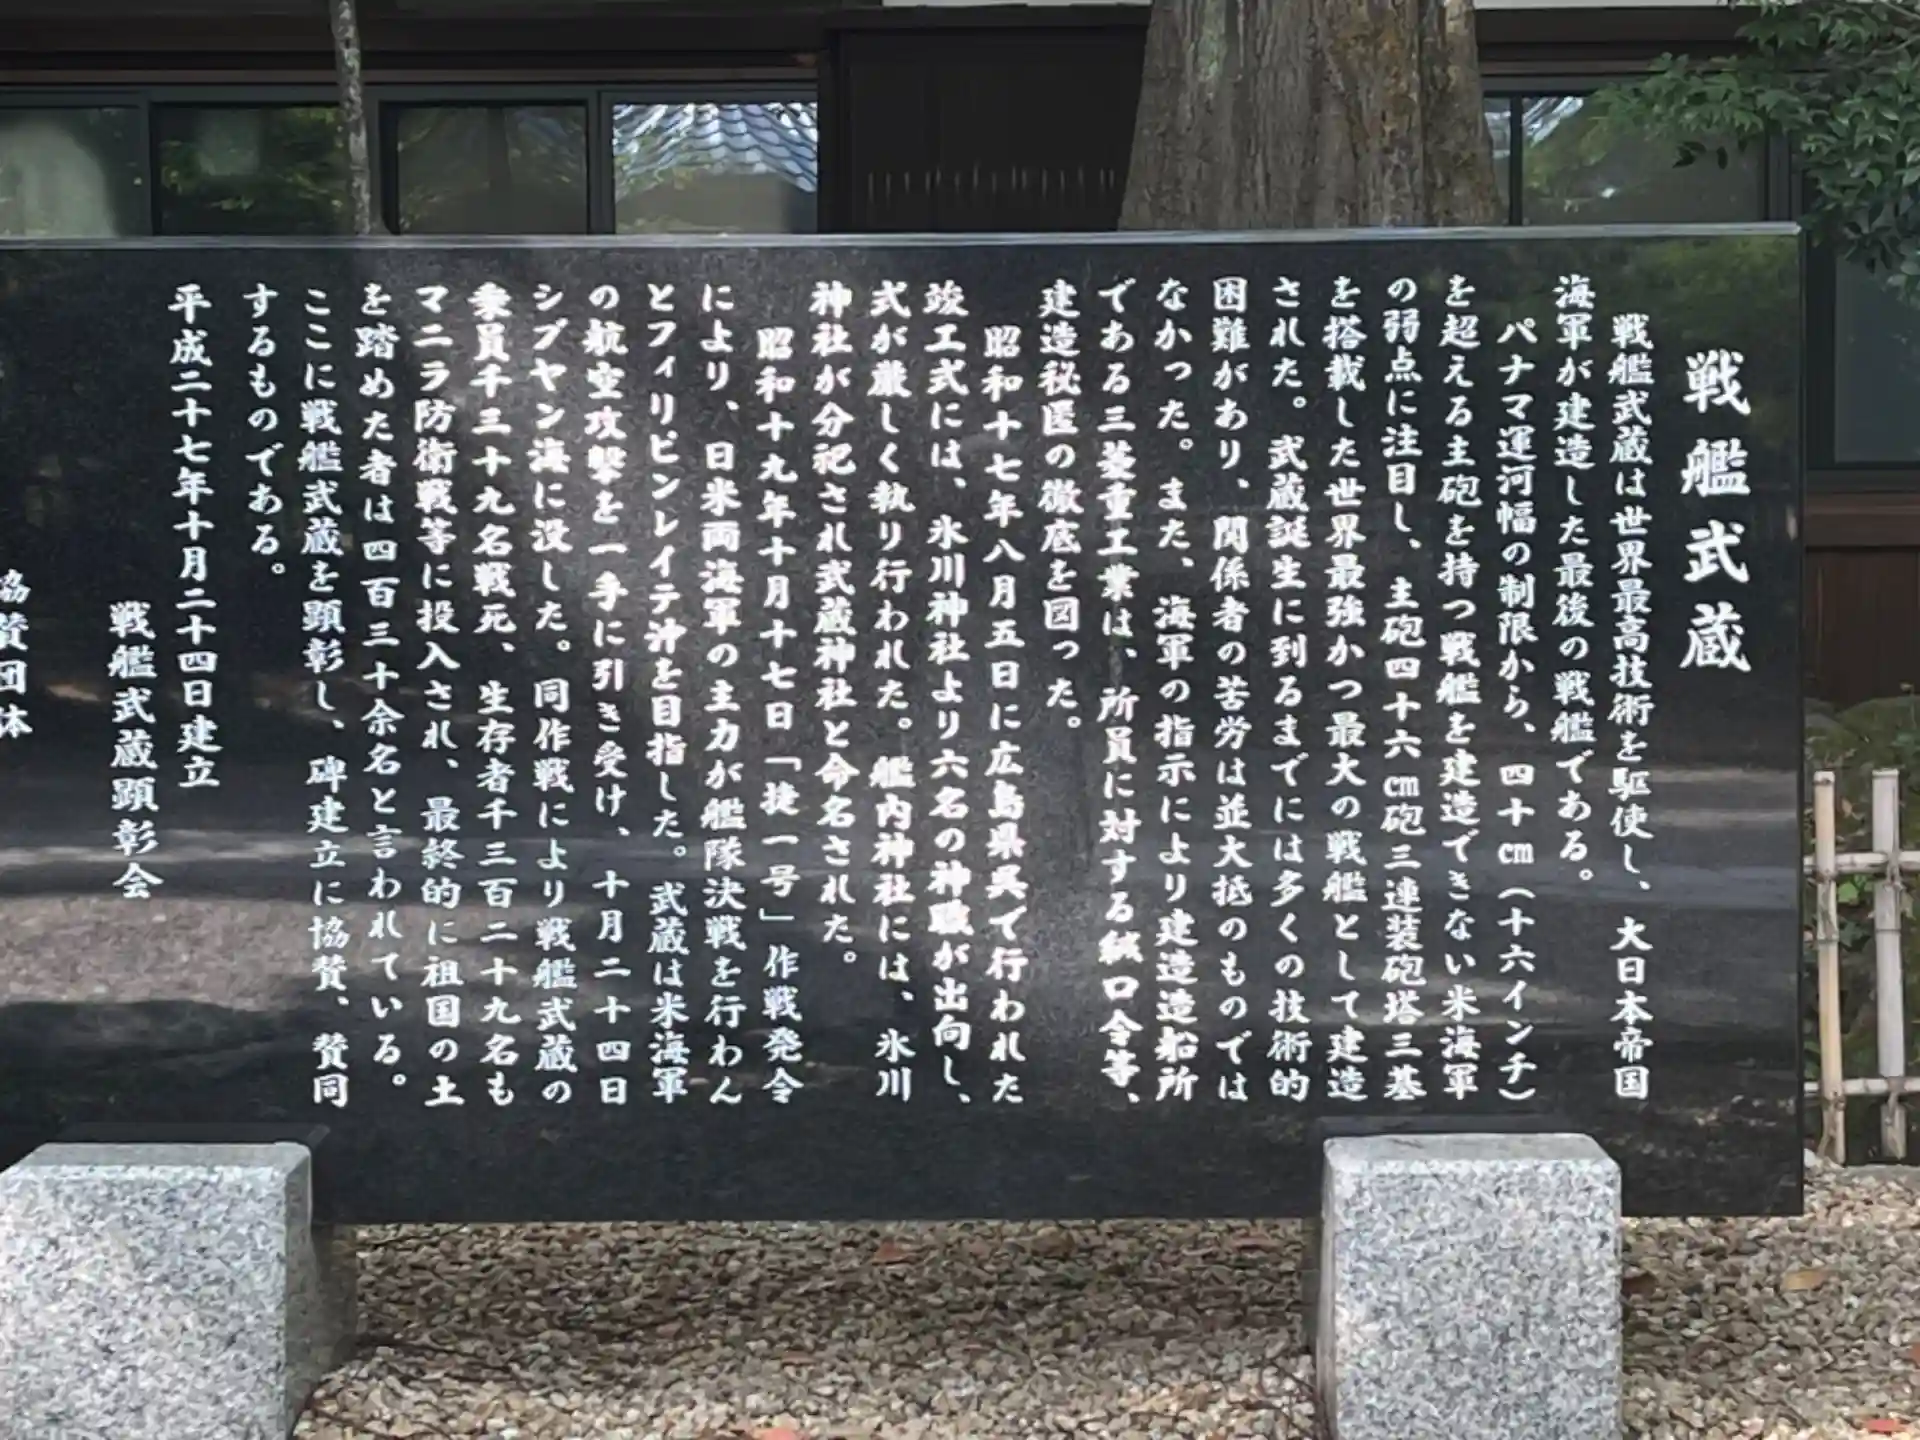 戦艦武蔵
戦艦武蔵は世界最高技術を駆使し、大日本帝国
海軍が建造した最後の戦艦である。
パナマ運河幅の制限から、四十㎝(十六インチ)
を超える主砲を持つ戦艦を建造できない米海軍
の弱点に注目し、主砲四十六㎝砲三連装砲塔三基
を搭載した世界最強かつ最大の戦艦として建造
された。武蔵誕生に到るまでには多くの技術的
困難があり、関係者の苦労は並大抵のものでは
なかった。また、海軍の指示により建造造船所
である三菱重工業は、所員に対する緘口令等、
建造秘匿の徹底を図った。
昭和十七年八月五日に広島県呉で行われた
竣工式には、氷川神社より六名の神職が出向し、
式が厳しく執り行われた。艦内神社には、氷川
神社が分祀され武蔵神社と命名された。
昭和十九年十月十七日「捷一号」作戦発令
により、日米両海軍の主力が艦隊決戦を行わん
とフィリピンレイテ沖を目指した。武蔵は米海軍
の航空攻撃を一手に引き受け、十月二十四日
シブヤン海に没した。同作戦により戦艦武蔵の
乗員千三十九名戦死、生存者千三百二十九名も
マニラ防衛戦等に投入され、最終的に祖国の土
を踏めた者は四百三十余名と言われている。
ここに戦艦武蔵を顕彰し、碑建立に協賛、賛同
するものである。
平成二十七年十月二十四日建立
戦艦武蔵顕彰会
協賛団体